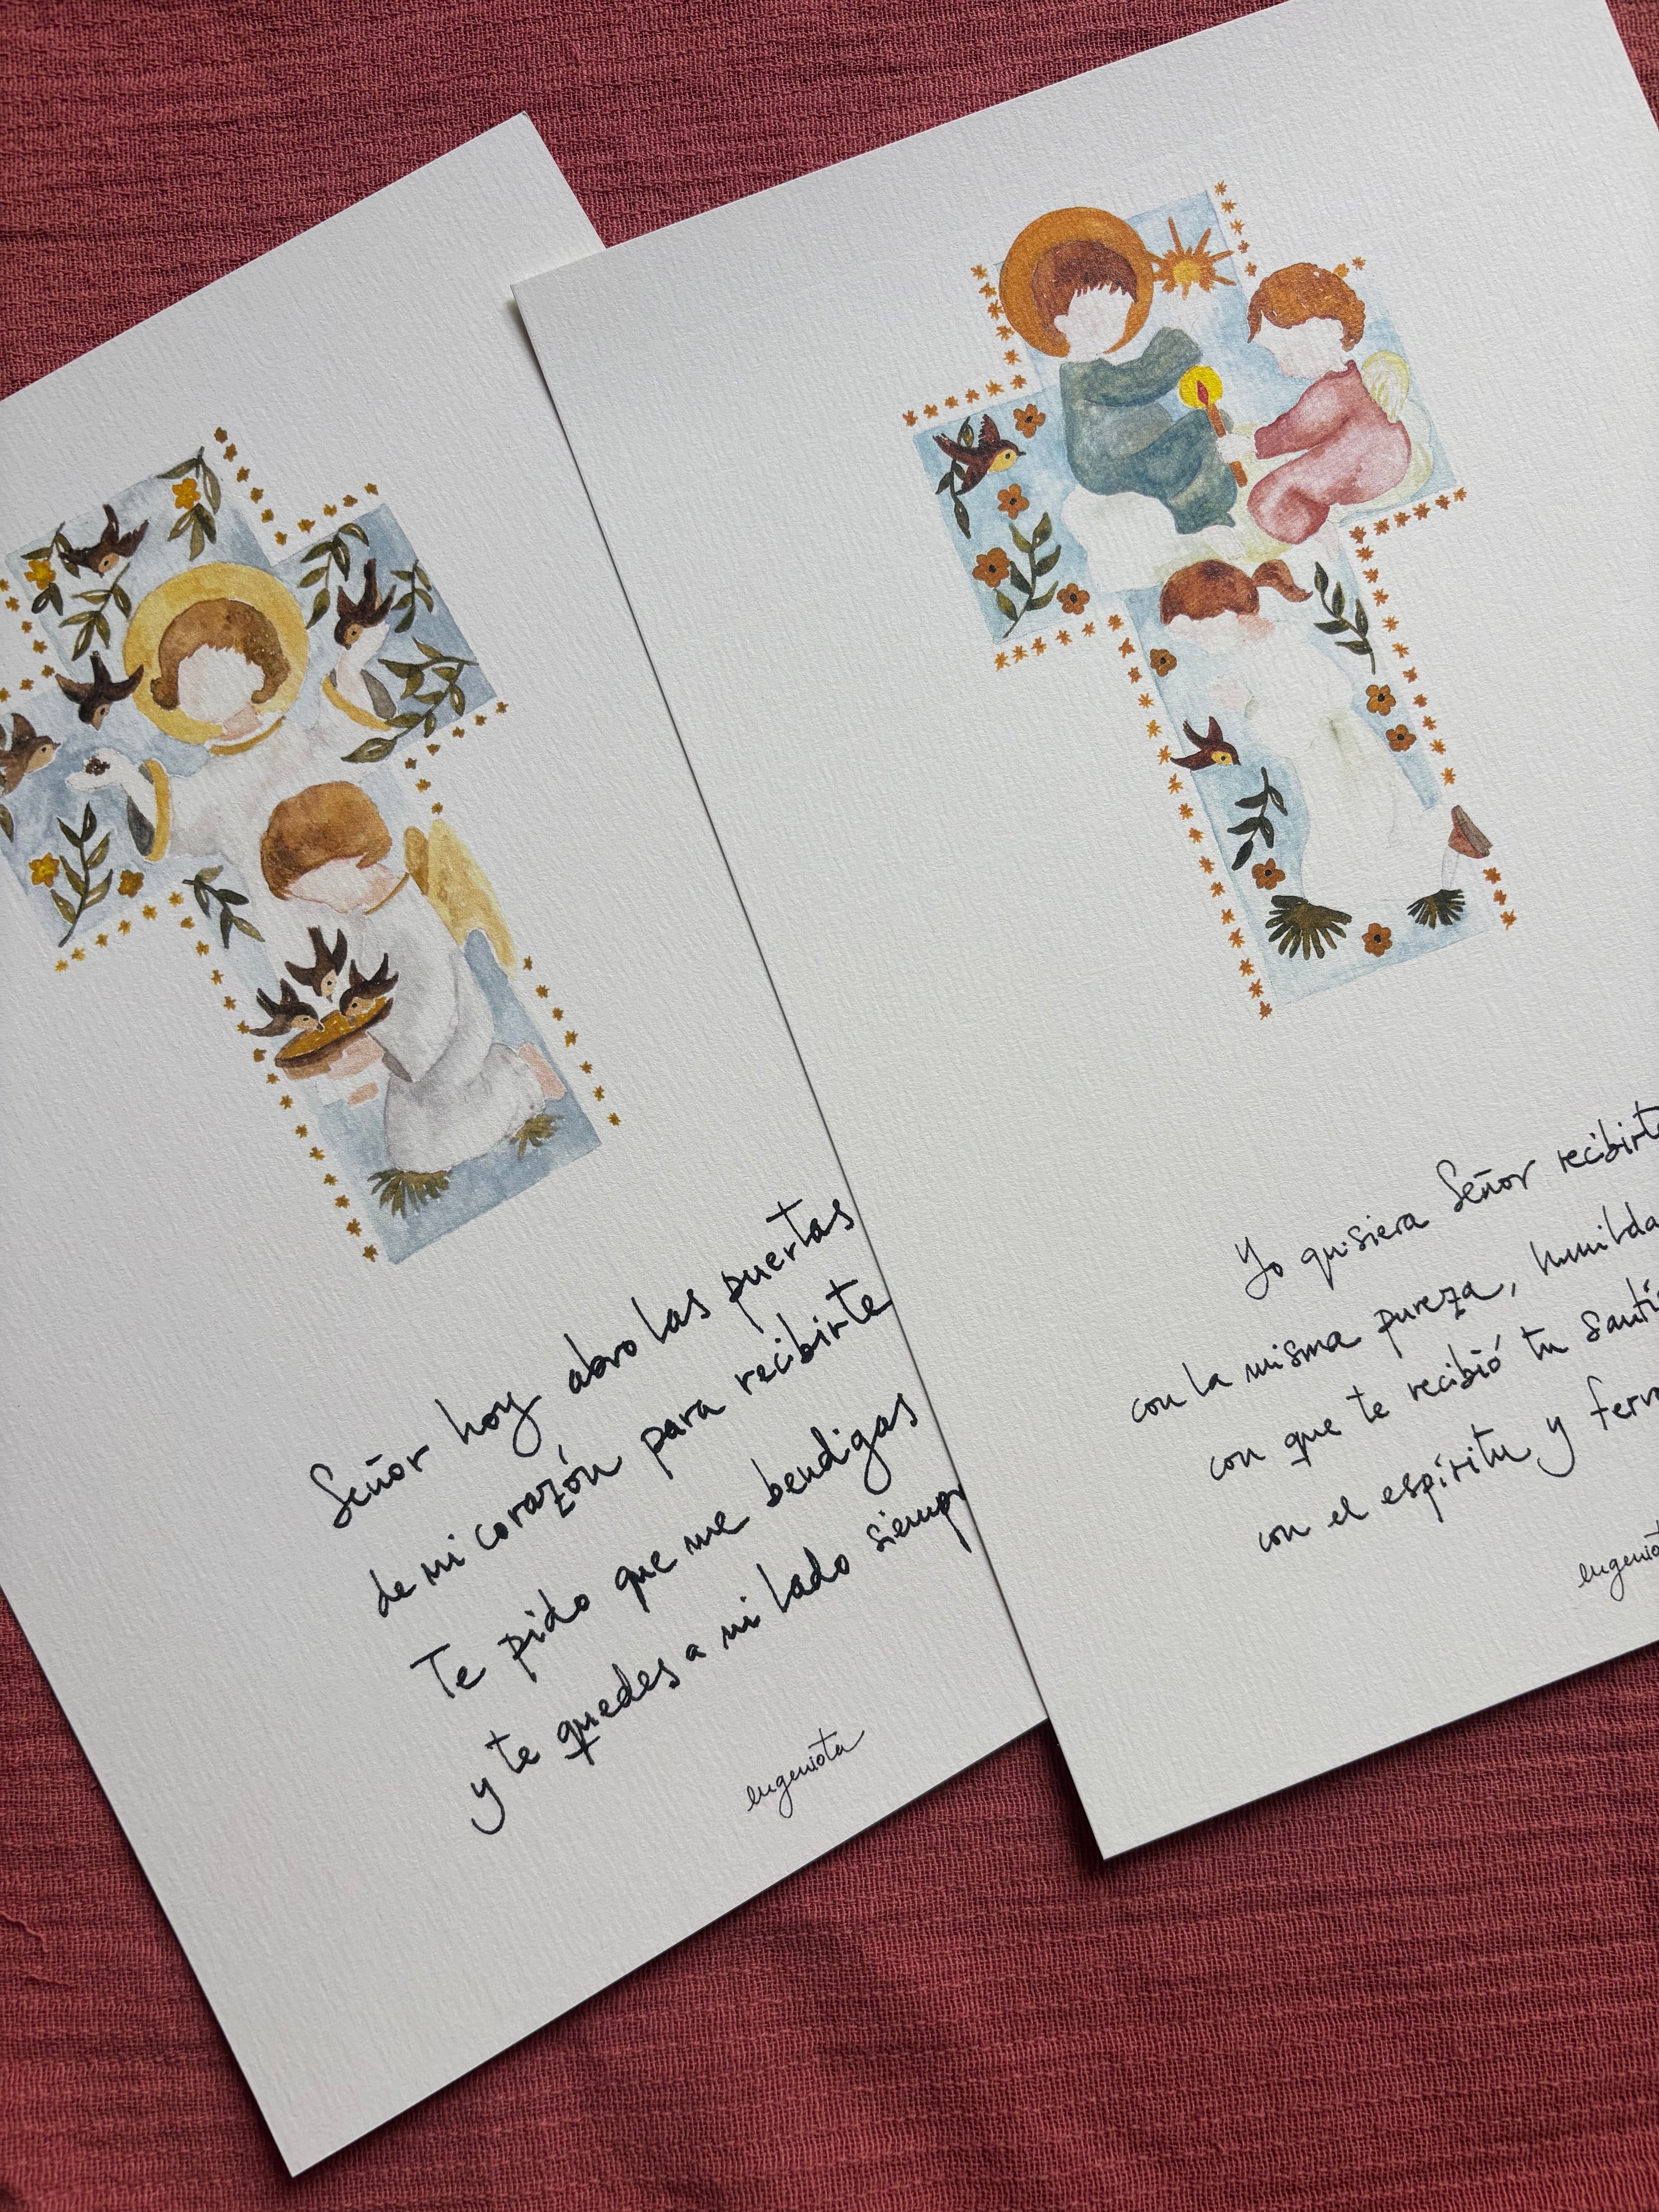 Señor hoy abro las puertas
de mi corazón para recibirte
Te pido que me bendigas
y te quedes a mi lado siemp
eugeniota
Yo quisiera Señor recibirte
con la misma pureza, humilda
con que te recibió tu Santí
con el espíritu y ferv
eugeniot